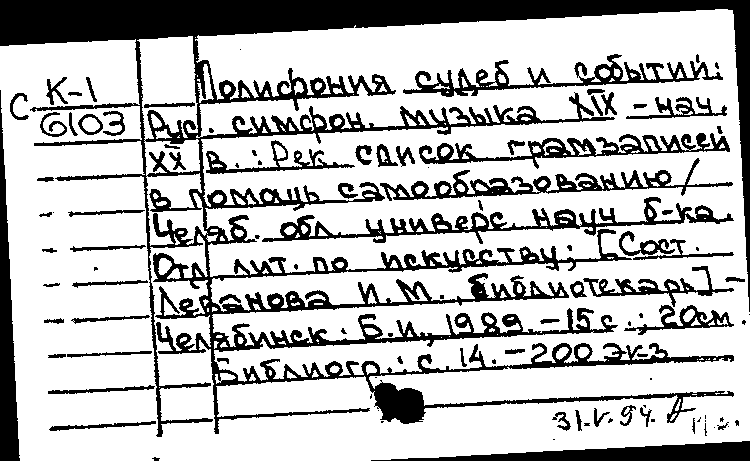 С К-1
6103
Полифония судеб и событий:
Рус. симфон. музыка XIX - нач.
XX в.: Рек. список грамзаписей
в помощь самообразованию /
Челяб. обл. универс. науч б-ка.
Отд лит. по искусству; [Сост.
Леванова И. М., библиотекарь] -
Челябинск: Б. и., 1989. - 15 с.; 20см.
Библиогр.: с. 14. - 200 экз
31.V.94.